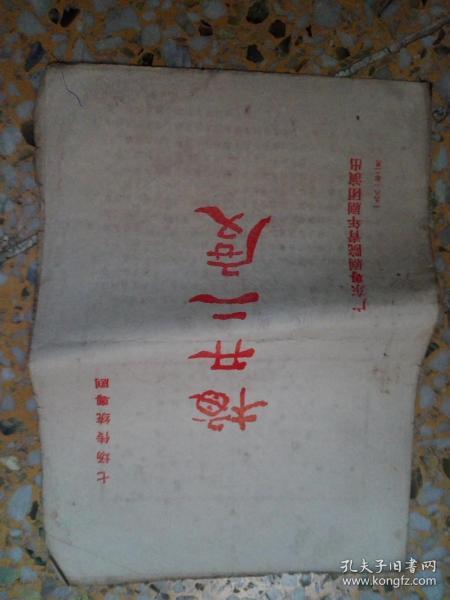 七场传统粤剧
梅开二度
广东粤剧院青年剧团演出
孔夫子旧书网
www.kongfz.com